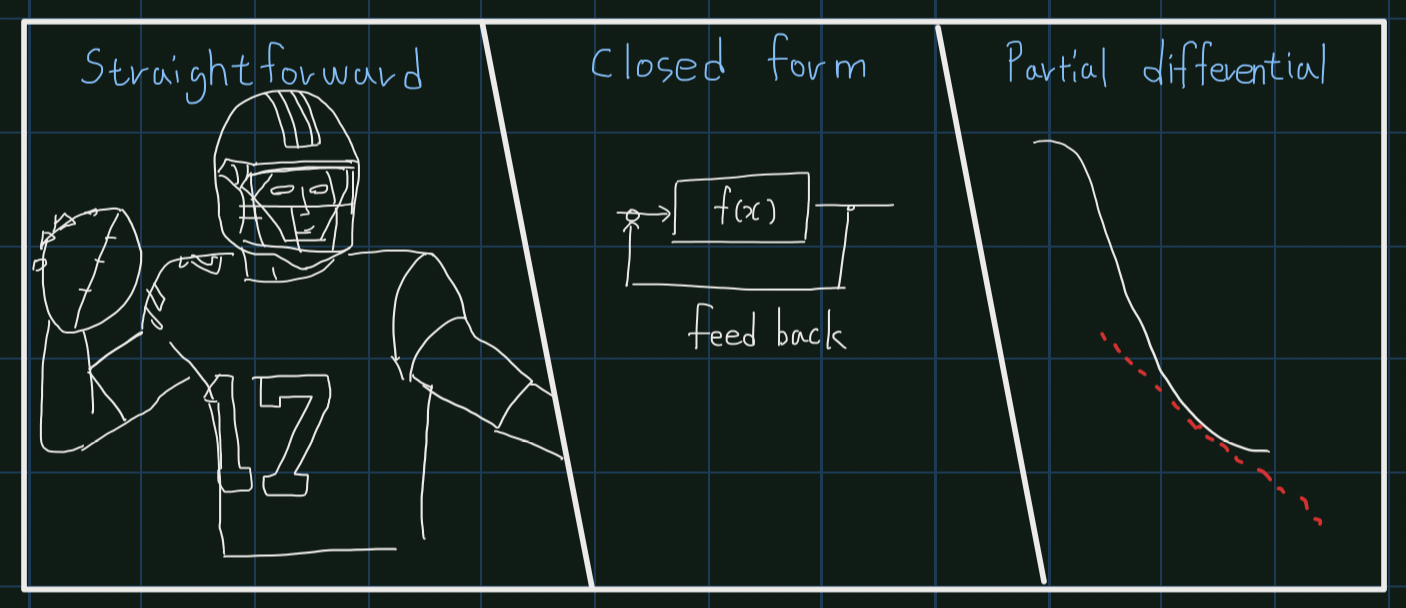 Straightforward
17
Closed form
f(x)
feed back
Partial differential